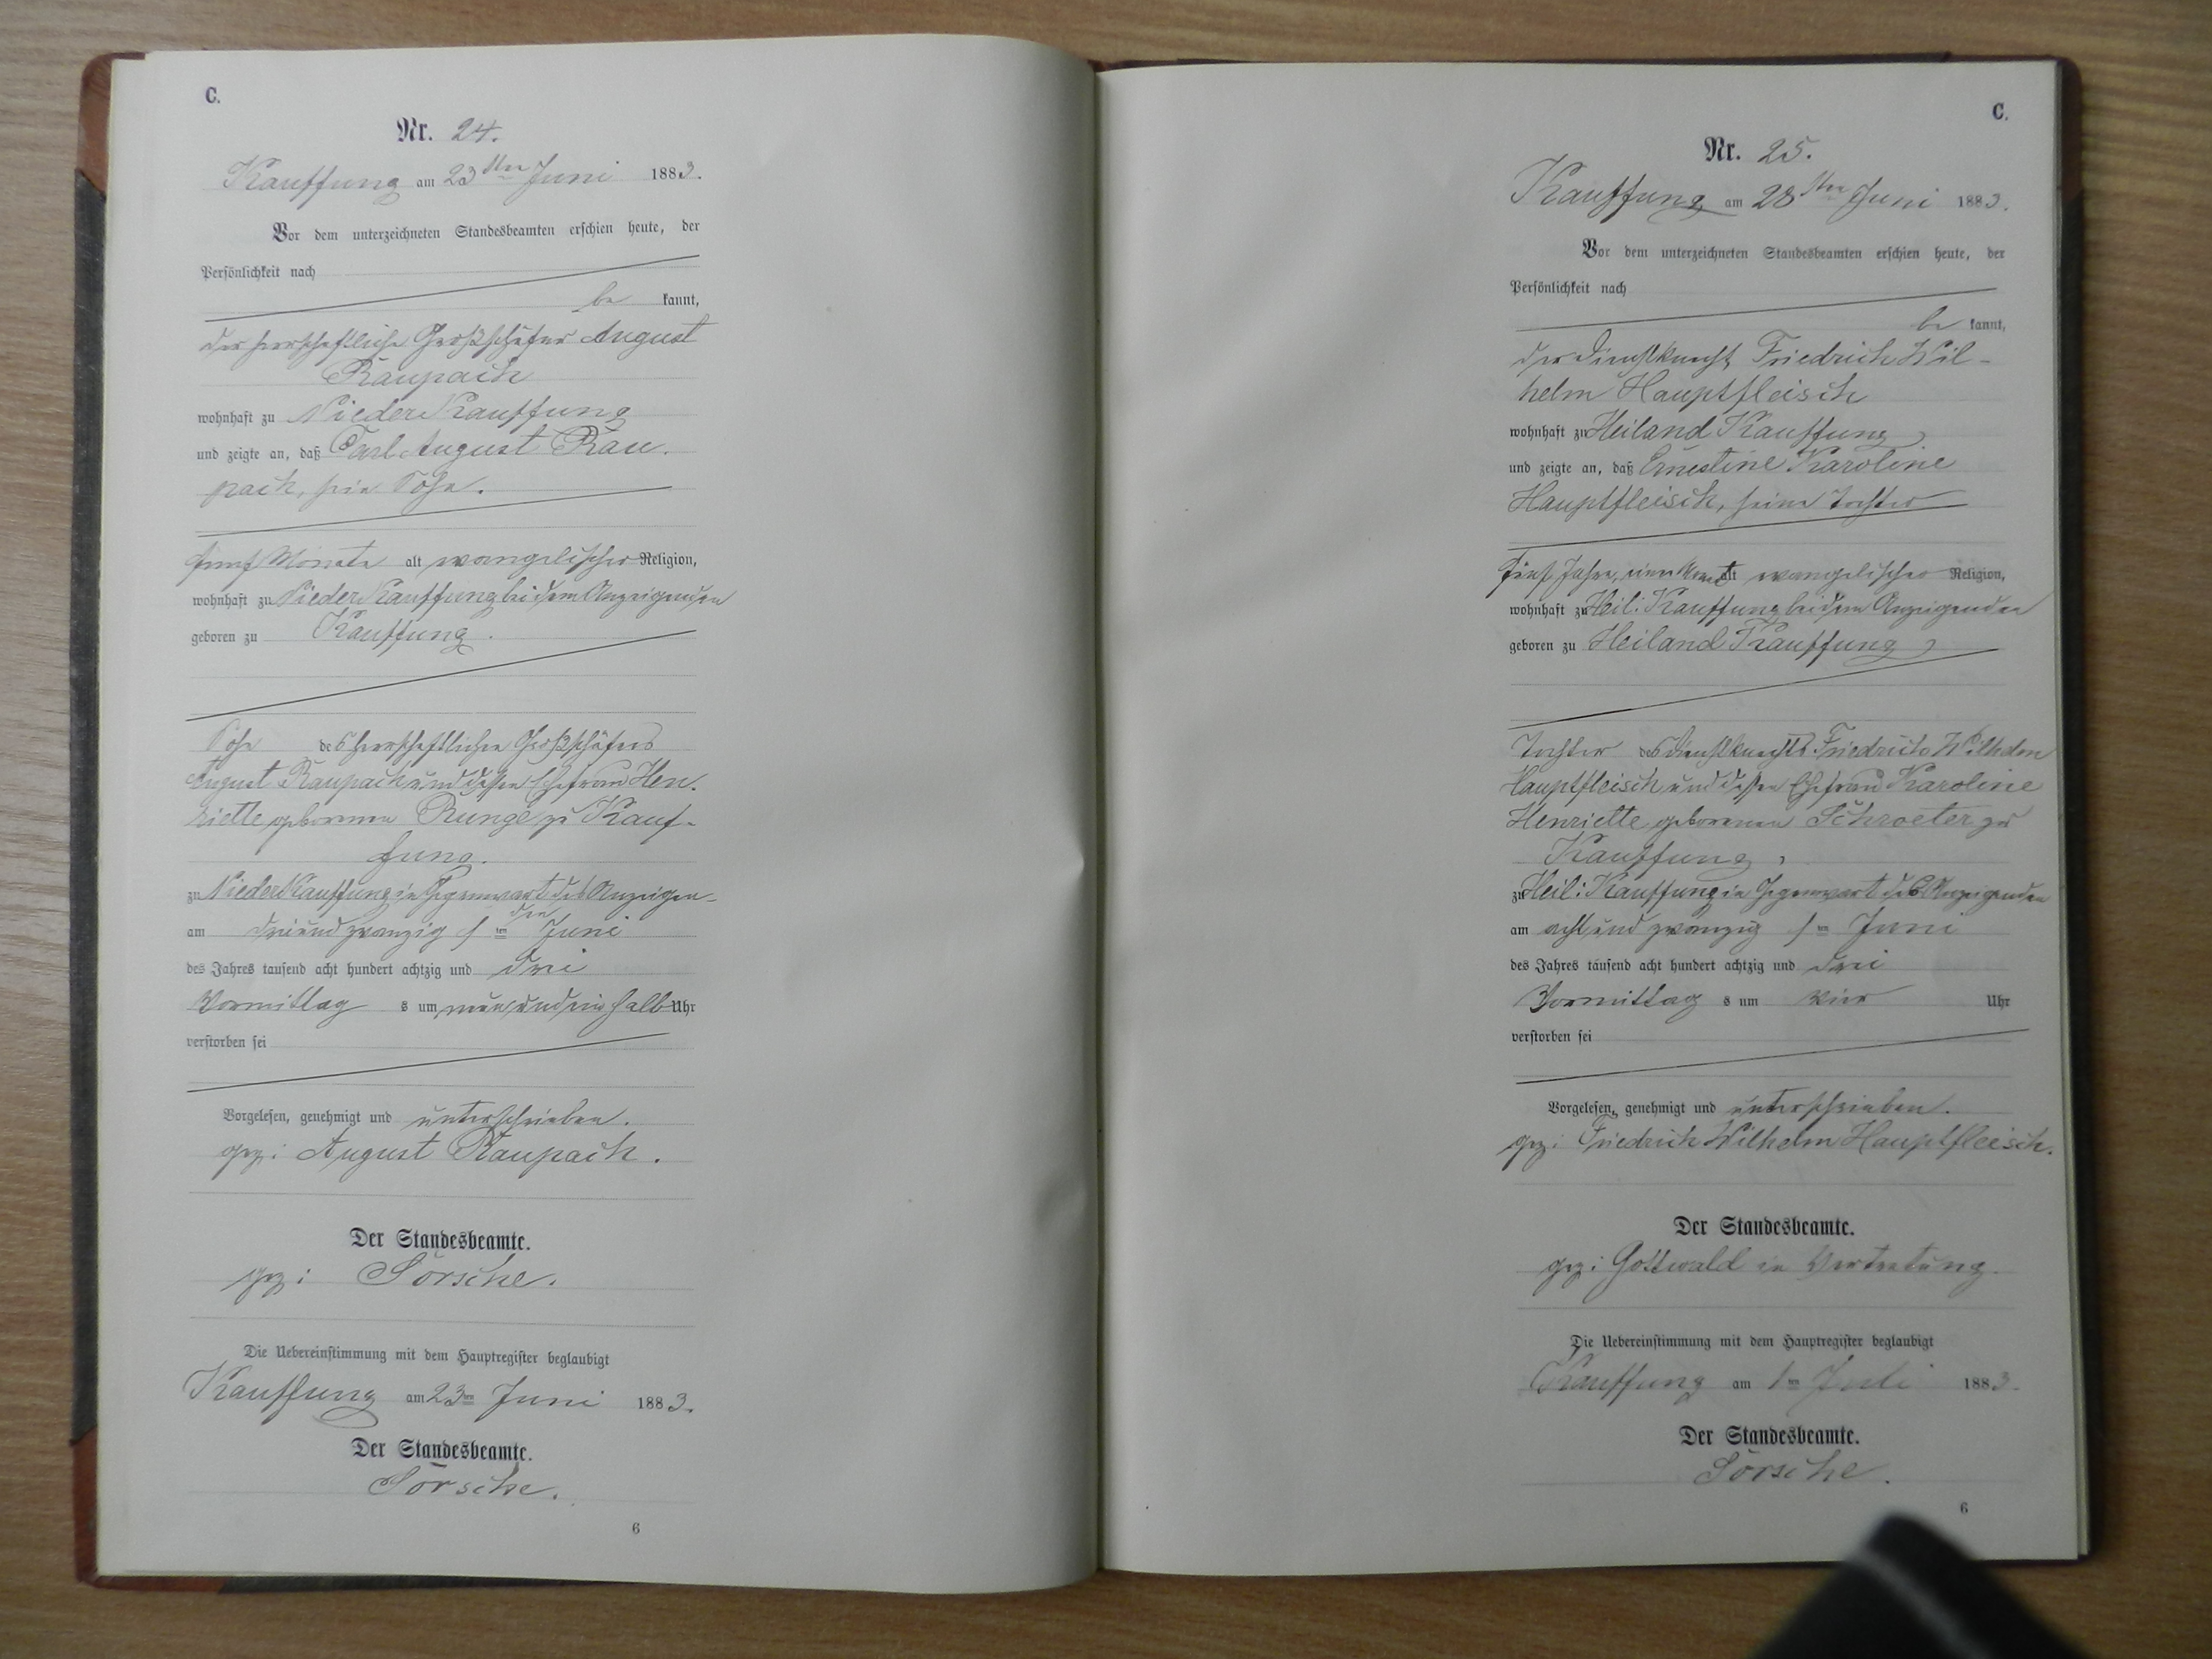 C.
Nr. 24.
Kauffung am 23ten Juni 1883.
Vor dem unterzeichneten Standesbeamten erschien heute, der
Persönlichkeit nach
be kannt,
der herrschaftliche Großschäfer August
Raupach
wohnhaft zu Nieder Kauffung
und zeigte an, daß Carl August Rau-
pach, sein Sohn.
fünf Monate alt evangelischer Religion,
wohnhaft zu Nieder Kauffung bei dem Anzeigenden
geboren zu Kauffung.
Sohn des herrschaftlichen Großschäfers
August Raupach und dessen Ehefrau Hen-
riette geborenen Runge zu Kauf-
fung.
zu Nieder Kauffung in Gegenwart des Anzeigen-
den
am drei und zwanzig sten Juni
des Jahres tausend acht hundert achtzig und drei
Vormittag s um neun und ein halb Uhr
verstorben sei
Vorgelesen, genehmigt und unterschrieben.
gez: August Raupach.
Der Standesbeamte.
gez: Sörsche.
Die Uebereinstimmung mit dem Hauptregister beglaubigt
Kauffung am 23ten Juni 1883.
Der Standesbeamte.
Sörsche.
6
C.
Nr. 25.
Kauffung am 28ten Juni 1883.
Vor dem unterzeichneten Standesbeamten erschien heute, der
Persönlichkeit nach
be kannt,
der Dienstknecht Friedrich Wil-
helm Hauptfleisch
wohnhaft zu Heiland Kauffung
und zeigte an, daß Ernestine Karoline
Hauptfleisch, seine Tochter
fünf Jahre, einen Monat alt evangelischer Religion,
wohnhaft zu Heil: Kauffung bei dem Anzeigenden
geboren zu Heiland Kauffung
Tochter des Dienstknechts Friedrich Wilhelm
Hauptfleisch und dessen Ehefrau Karoline
Henriette geborenen Schroeter zu
Kauffung,
zu Heil: Kauffung in Gegenwart des Anzeigenden
am acht und zwanzig sten Juni
des Jahres tausend acht hundert achtzig und drei
Vormittag s um vier Uhr
verstorben sei
Vorgelesen, genehmigt und unterschrieben.
gez: Friedrich Wilhelm Hauptfleisch.
Der Standesbeamte.
gez: Gottwald in Vertretung.
Die Uebereinstimmung mit dem Hauptregister beglaubigt
Kauffung am 1ten Juli 1883.
Der Standesbeamte.
Sörsche.
6